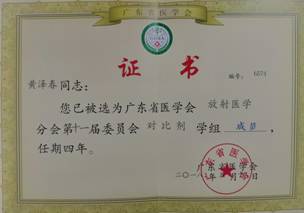 广东省医学会
证书
编号: 6574
黄泽春同志:
您已被选为广东省医学会 放射医学
分会第十一届委员会 对比剂 学组 成员,
任期四年。
广东省医学会
二〇一八年